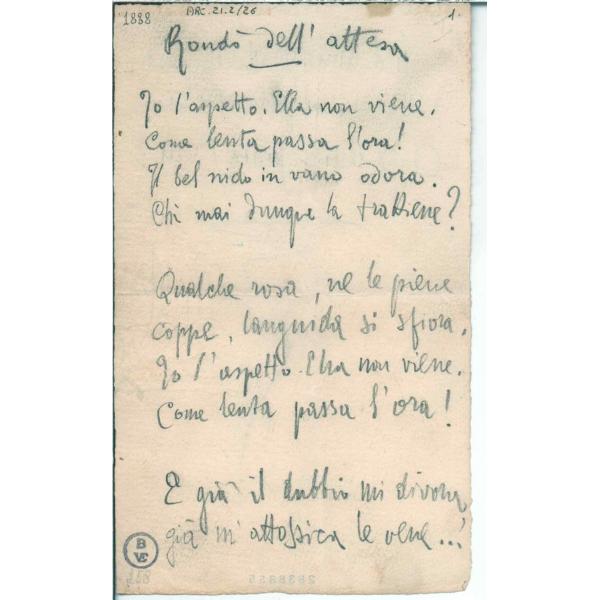 1888
ARC. 21.2/26
1.
Rondò dell'attesa
Io l'aspetto. Ella non viene.
Come lenta passa l'ora!
Il bel nido in vano odora.
Chi mai dunque la trattiene?
Qualche rosa, ne le piene
coppe, languida si sfiora.
Io l'aspetto. Ella non viene.
Come lenta passa l'ora!
E già il dubbio mi divora,
già m'attossica le vene...
B
VE